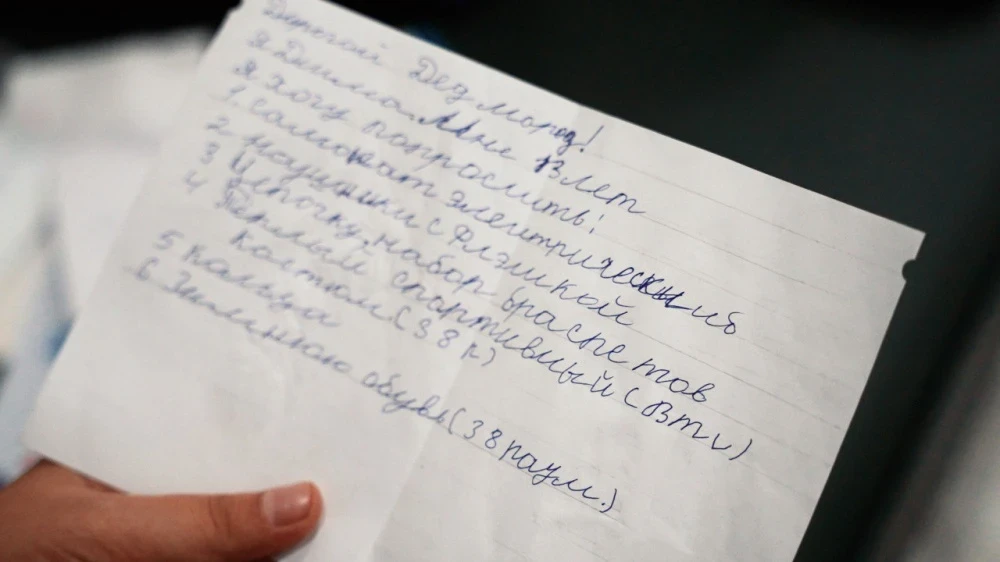 Дорогой Дед мороз!
Я Дима. Мне 13 лет
Я хочу попросить:
1. самокат электрический
2 наушники с флэшкой
3 Цепочку, набор браслетов
4 Теплый спортивный (
костюм (38 р)
5 Кольца
6. Зимнюю обувь (38 разм.)